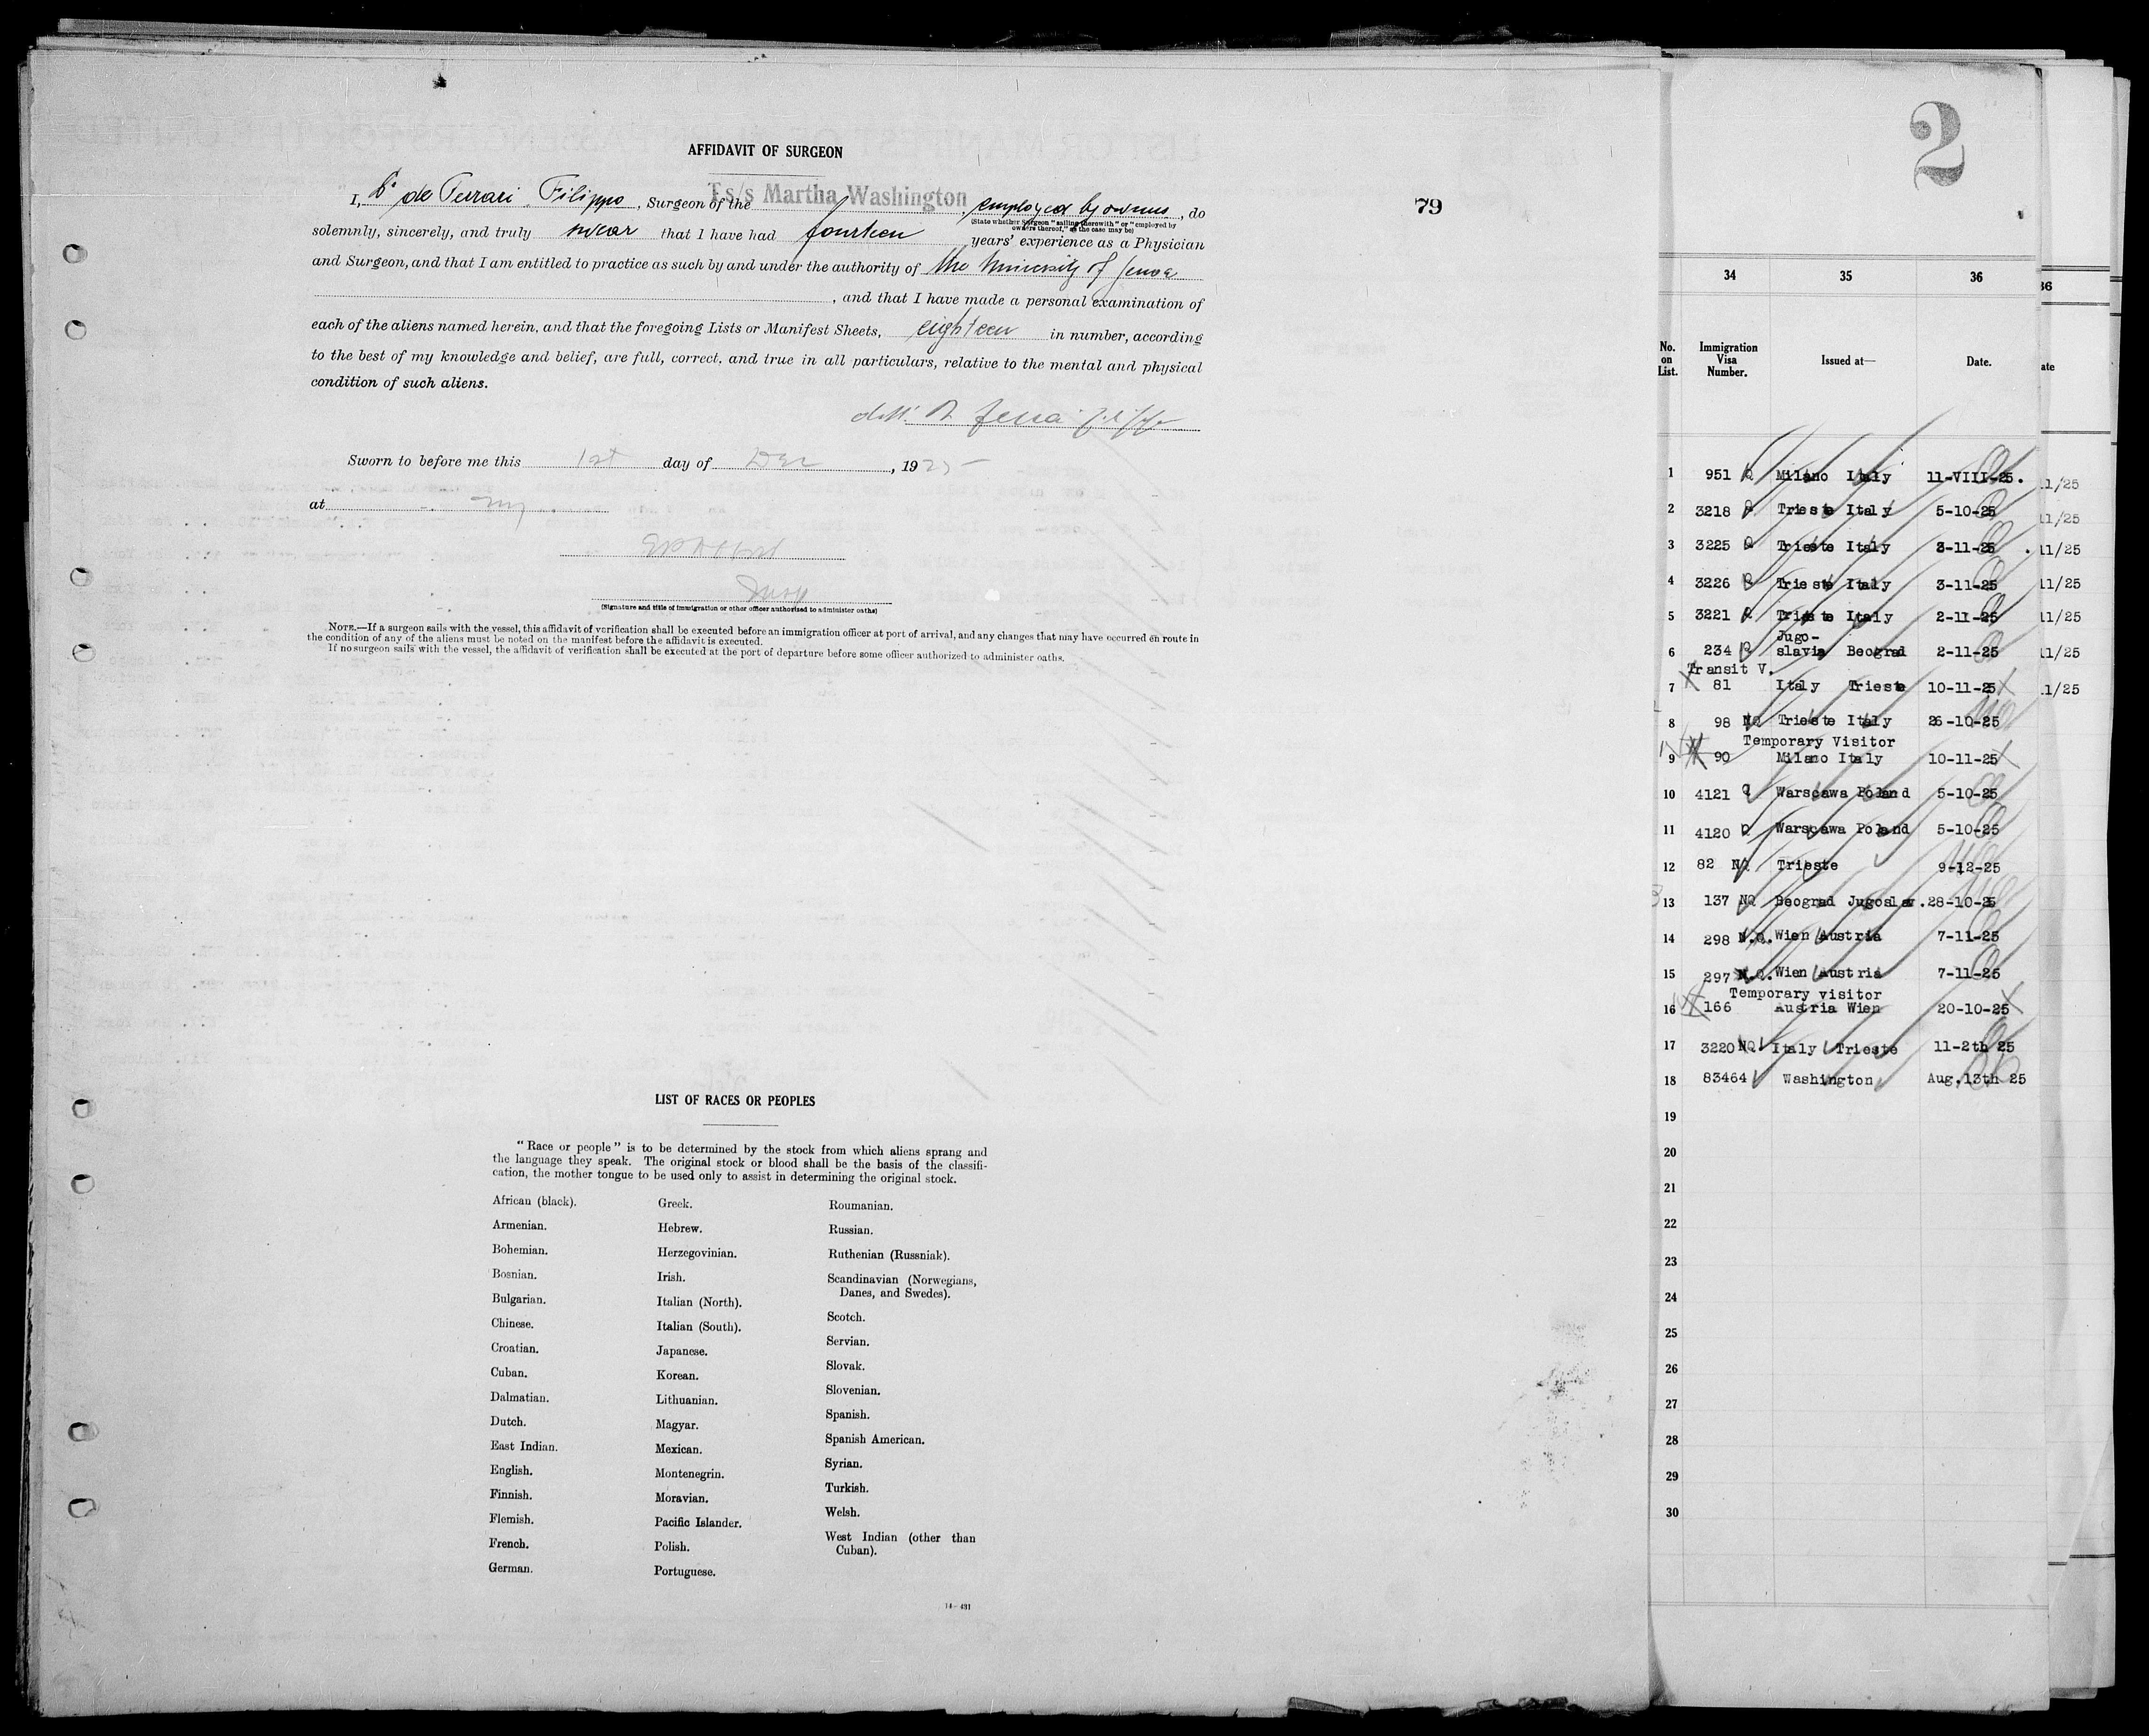 AFFIDAVIT OF SURGEON
I, Dr de Ferrari Filippo, Surgeon of the T.s/s Martha Washington, employed by owners, do
(State whether Surgeon "sailing therewith" or "employed by
owners thereof," as the case may be)
solemnly, sincerely, and truly swear that I have had fourteen years' experience as a Physician
and Surgeon, and that I am entitled to practice as such by and under the authority of the University of Genoa
, and that I have made a personal examination of
each of the aliens named herein, and that the foregoing Lists or Manifest Sheets, eighteen in number, according
to the best of my knowledge and belief, are full, correct, and true in all particulars, relative to the mental and physical
condition of such aliens.
Sworn to before me this 1st day of Dec, 1925
at ny
(Signature and title of immigration or other officer authorized to administer oaths)
NOTE.—If a surgeon sails with the vessel, this affidavit of verification shall be executed before an immigration officer at port of arrival, and any changes that may have occurred en route in
the condition of any of the aliens must be noted on the manifest before the affidavit is executed.
If no surgeon sails with the vessel, the affidavit of verification shall be executed at the port of departure before some officer authorized to administer oaths.
79
LIST OF RACES OR PEOPLES
"Race or people" is to be determined by the stock from which aliens sprang and
the language they speak. The original stock or blood shall be the basis of the classifi-
cation, the mother tongue to be used only to assist in determining the original stock.
African (black).
Armenian.
Bohemian.
Bosnian.
Bulgarian.
Chinese.
Croatian.
Cuban.
Dalmatian.
Dutch.
East Indian.
English.
Finnish.
Flemish.
French.
German.
Greek.
Hebrew.
Herzegovinian.
Irish.
Italian (North).
Italian (South).
Japanese.
Korean.
Lithuanian.
Magyar.
Mexican.
Montenegrin.
Moravian.
Pacific Islander.
Polish.
Portuguese.
Roumanian.
Russian.
Ruthenian (Russniak).
Scandinavian (Norwegians,
Danes, and Swedes).
Scotch.
Servian.
Slovak.
Slovenian.
Spanish.
Spanish American.
Syrian.
Turkish.
Welsh.
West Indian (other than
Cuban).
14—431
2
34 35 36
No. on List. Immigration Visa Number. Issued at— Date.
1 951 Q Milano Italy 11-VIII-25.
2 3218 Q Trieste Italy 5-10-25
3 3225 Q Trieste Italy 3-11-25
4 3226 Q Trieste Italy 3-11-25
5 3221 Q Trieste Italy 2-11-25
Jugo-
6 234 Q slavia Beograd 2-11-25
Transit V.
7 81 Italy Trieste 10-11-25
8 98 NQ Trieste Italy 26-10-25
Temporary Visitor
9 90 Milano Italy 10-11-25
10 4121 Q Warscawa Poland 5-10-25
11 4120 Q Warscawa Poland 5-10-25
12 82 NQ Trieste 9-12-25
13 137 NQ Beograd Jugoslav. 28-10-25
14 298 N.Q. Wien Austria 7-11-25
15 297 N.Q. Wien Austria 7-11-25
Temporary visitor
16 166 Austria Wien 20-10-25
17 3220 NQ Italy Trieste 11-2th 25
18 83464 Washington Aug.13th 25
19
20
21
22
23
24
25
26
27
28
29
30
36
ate
11/25
11/25
11/25
11/25
11/25
11/25
11/25